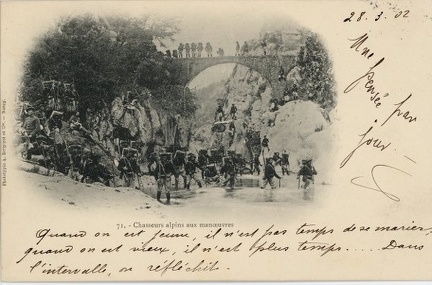 28.3.02
Une
pensée par
jour
71. - Chasseurs alpins aux manœuvres
Quand on est jeune, il n'est pas temps de se marier,
quand on est vieux, il n'est plus temps .... Dans
l'intervalle, on réfléchit.